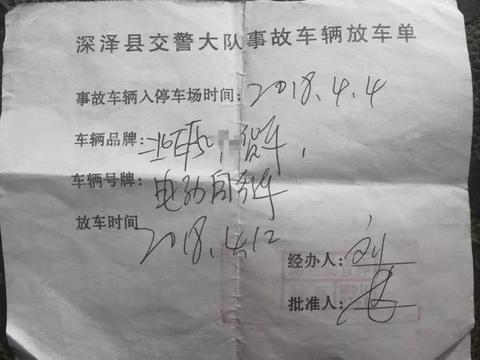 深泽县交警大队事故车辆放车单
事故车辆入停车场时间：2018.4.4
车辆品牌：
车辆号牌：电动自行车
放车时间 2018.4.12
经办人：刘
批准人：